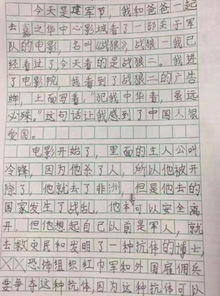 今天是建军节，我和爸爸一起
去新之华中心影城看了一部关于军
队的电影，名叫《战狼》战狼一我已
经看过了今天看的是战狼二。我进
了电影院，我看到了战狼二的广告
牌，上面写着："犯我中华者，虽远
必殊。"这句话让我感到了中国人很
爱国。
电影开始了，里面的主人公叫
冷锋，因为他杀了人，所以他被开
除了，他就去了非洲，但是他去的
国家发生了战乱，他本可以安全离
开，但他想起自己以前是军人，就
去救灾民和发明了一种抗体的博士
恐怖组织红巾军和外国雇佣兵
要争夺这种抗体因为这种抗体可以